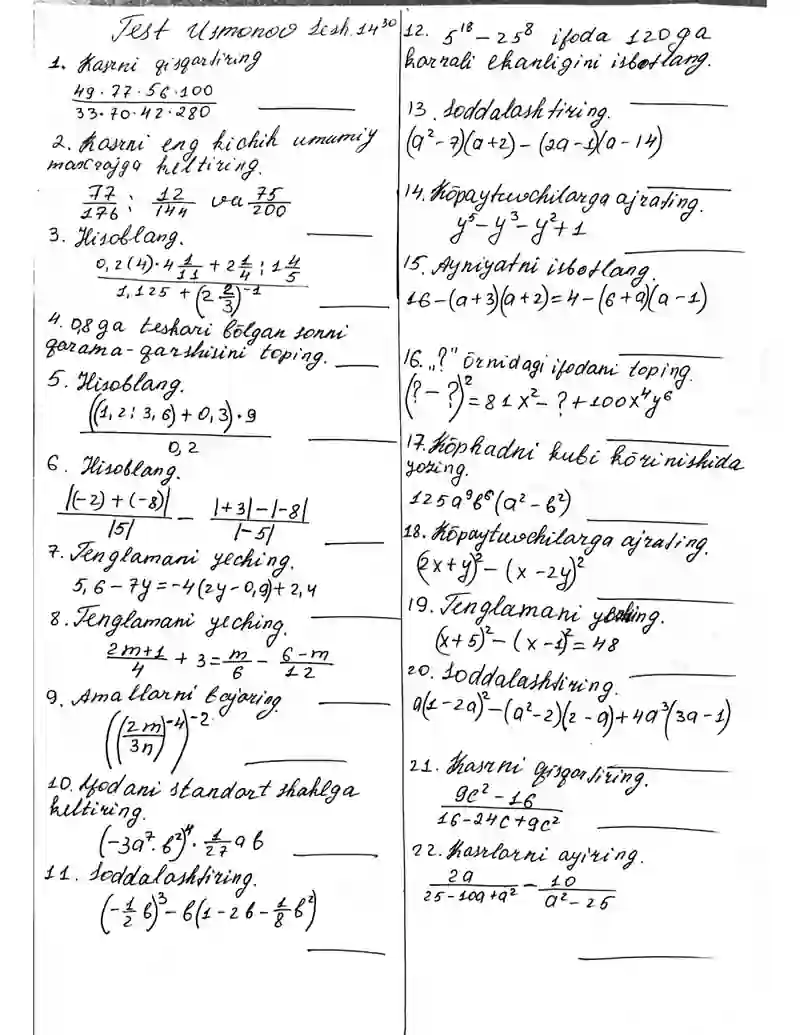 Test Usmonov sesh. 14³⁰
1. Kasrni qisqartiring
(49·77·56·100)/(33·70·42·280)
2. Kasrni eng kichik umumiy
maxrajga keltiring.
77/176; 12/144 va 75/200
3. Hisoblang.
(0,2(4)·4 1/11 + 2 1/4 : 1 4/5)/(1,125 + (2 2/3)⁻¹)
4. 0,8 ga teskari bo'lgan sonni
qarama-qarshisini toping.
5. Hisoblang.
((1,2 : 3,6) + 0,3)·9/0,2
6. Hisoblang.
|(-2) + (-8)|/|5| - (|+3| - |-8|)/|-5|
7. Tenglamani yeching.
5,6 - 7y = -4(2y - 0,9) + 2,4
8. Tenglamani yeching.
(2m+1)/4 + 3 = m/6 - (6-m)/12
9. Amallarni bajaring.
(((2m/3n)⁻⁴)⁻²
10. Ifodani standart shaklga
keltiring.
(-3a⁷·b²)⁴ · 1/27 ab
11. Soddalashtiring.
(-1/2 b)³ - b(1 - 2b - 1/8 b²)
12. 5¹⁸ - 25⁸ ifoda 120 ga
karrali ekanligini isbotlang.
13. Soddalashtiring.
(a² - 7)(a + 2) - (2a - 1)(a - 14)
14. Ko'paytuvchilarga ajrating.
y⁵ - y³ - y² + 1
15. Ayniyatni isbotlang.
16 - (a + 3)(a + 2) = 4 - (6 + a)(a - 1)
16. „?" o'rnidagi ifodani toping.
(? - ?)² = 81x² - ? + 100x⁴y⁶
17. Ko'phadni kubi ko'rinishida
yozing.
125a⁹b⁶(a² - b²)
18. Ko'paytuvchilarga ajrating.
(2x + y)² - (x - 2y)²
19. Tenglamani yeching.
(x + 5)² - (x - 1)² = 48
20. Soddalashtiring.
a(1 - 2a)² - (a² - 2)(2 - a) + 4a³(3a - 1)
21. Kasrni qisqartiring.
(9c² - 16)/(16 - 24c + 9c²)
22. Kasrlarni ayiring.
2a/(25 - 10a + a²) - 10/(a² - 25)